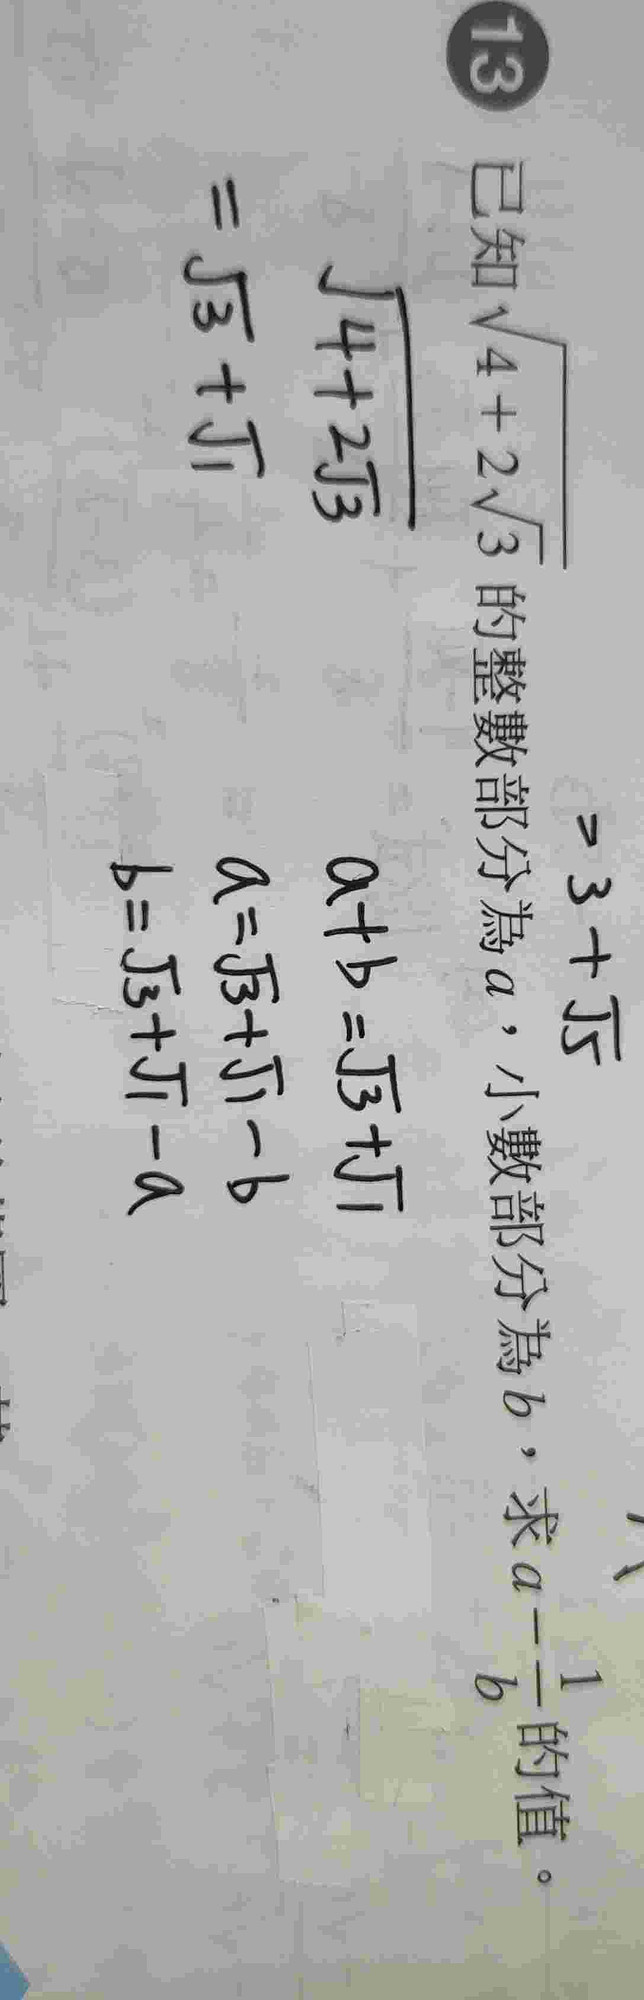 = 3 + √5
13 已知 √(4 + 2√3) 的整數部分為 a，小數部分為 b，求 a − 1/b 的值。
√(4+2√3)
= √3 + √1
a + b = √3 + √1
a = √3 + √1 − b
b = √3 + √1 − a